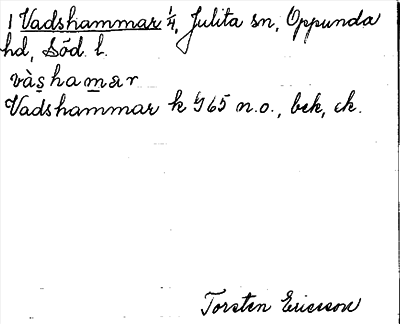 1 Vadshammar 1/4, Julita sn, Oppunda
hd, Söd. l.
vàshamar
Vadshammar k 465 n.o., bek, ek.
Torsten Ericsson